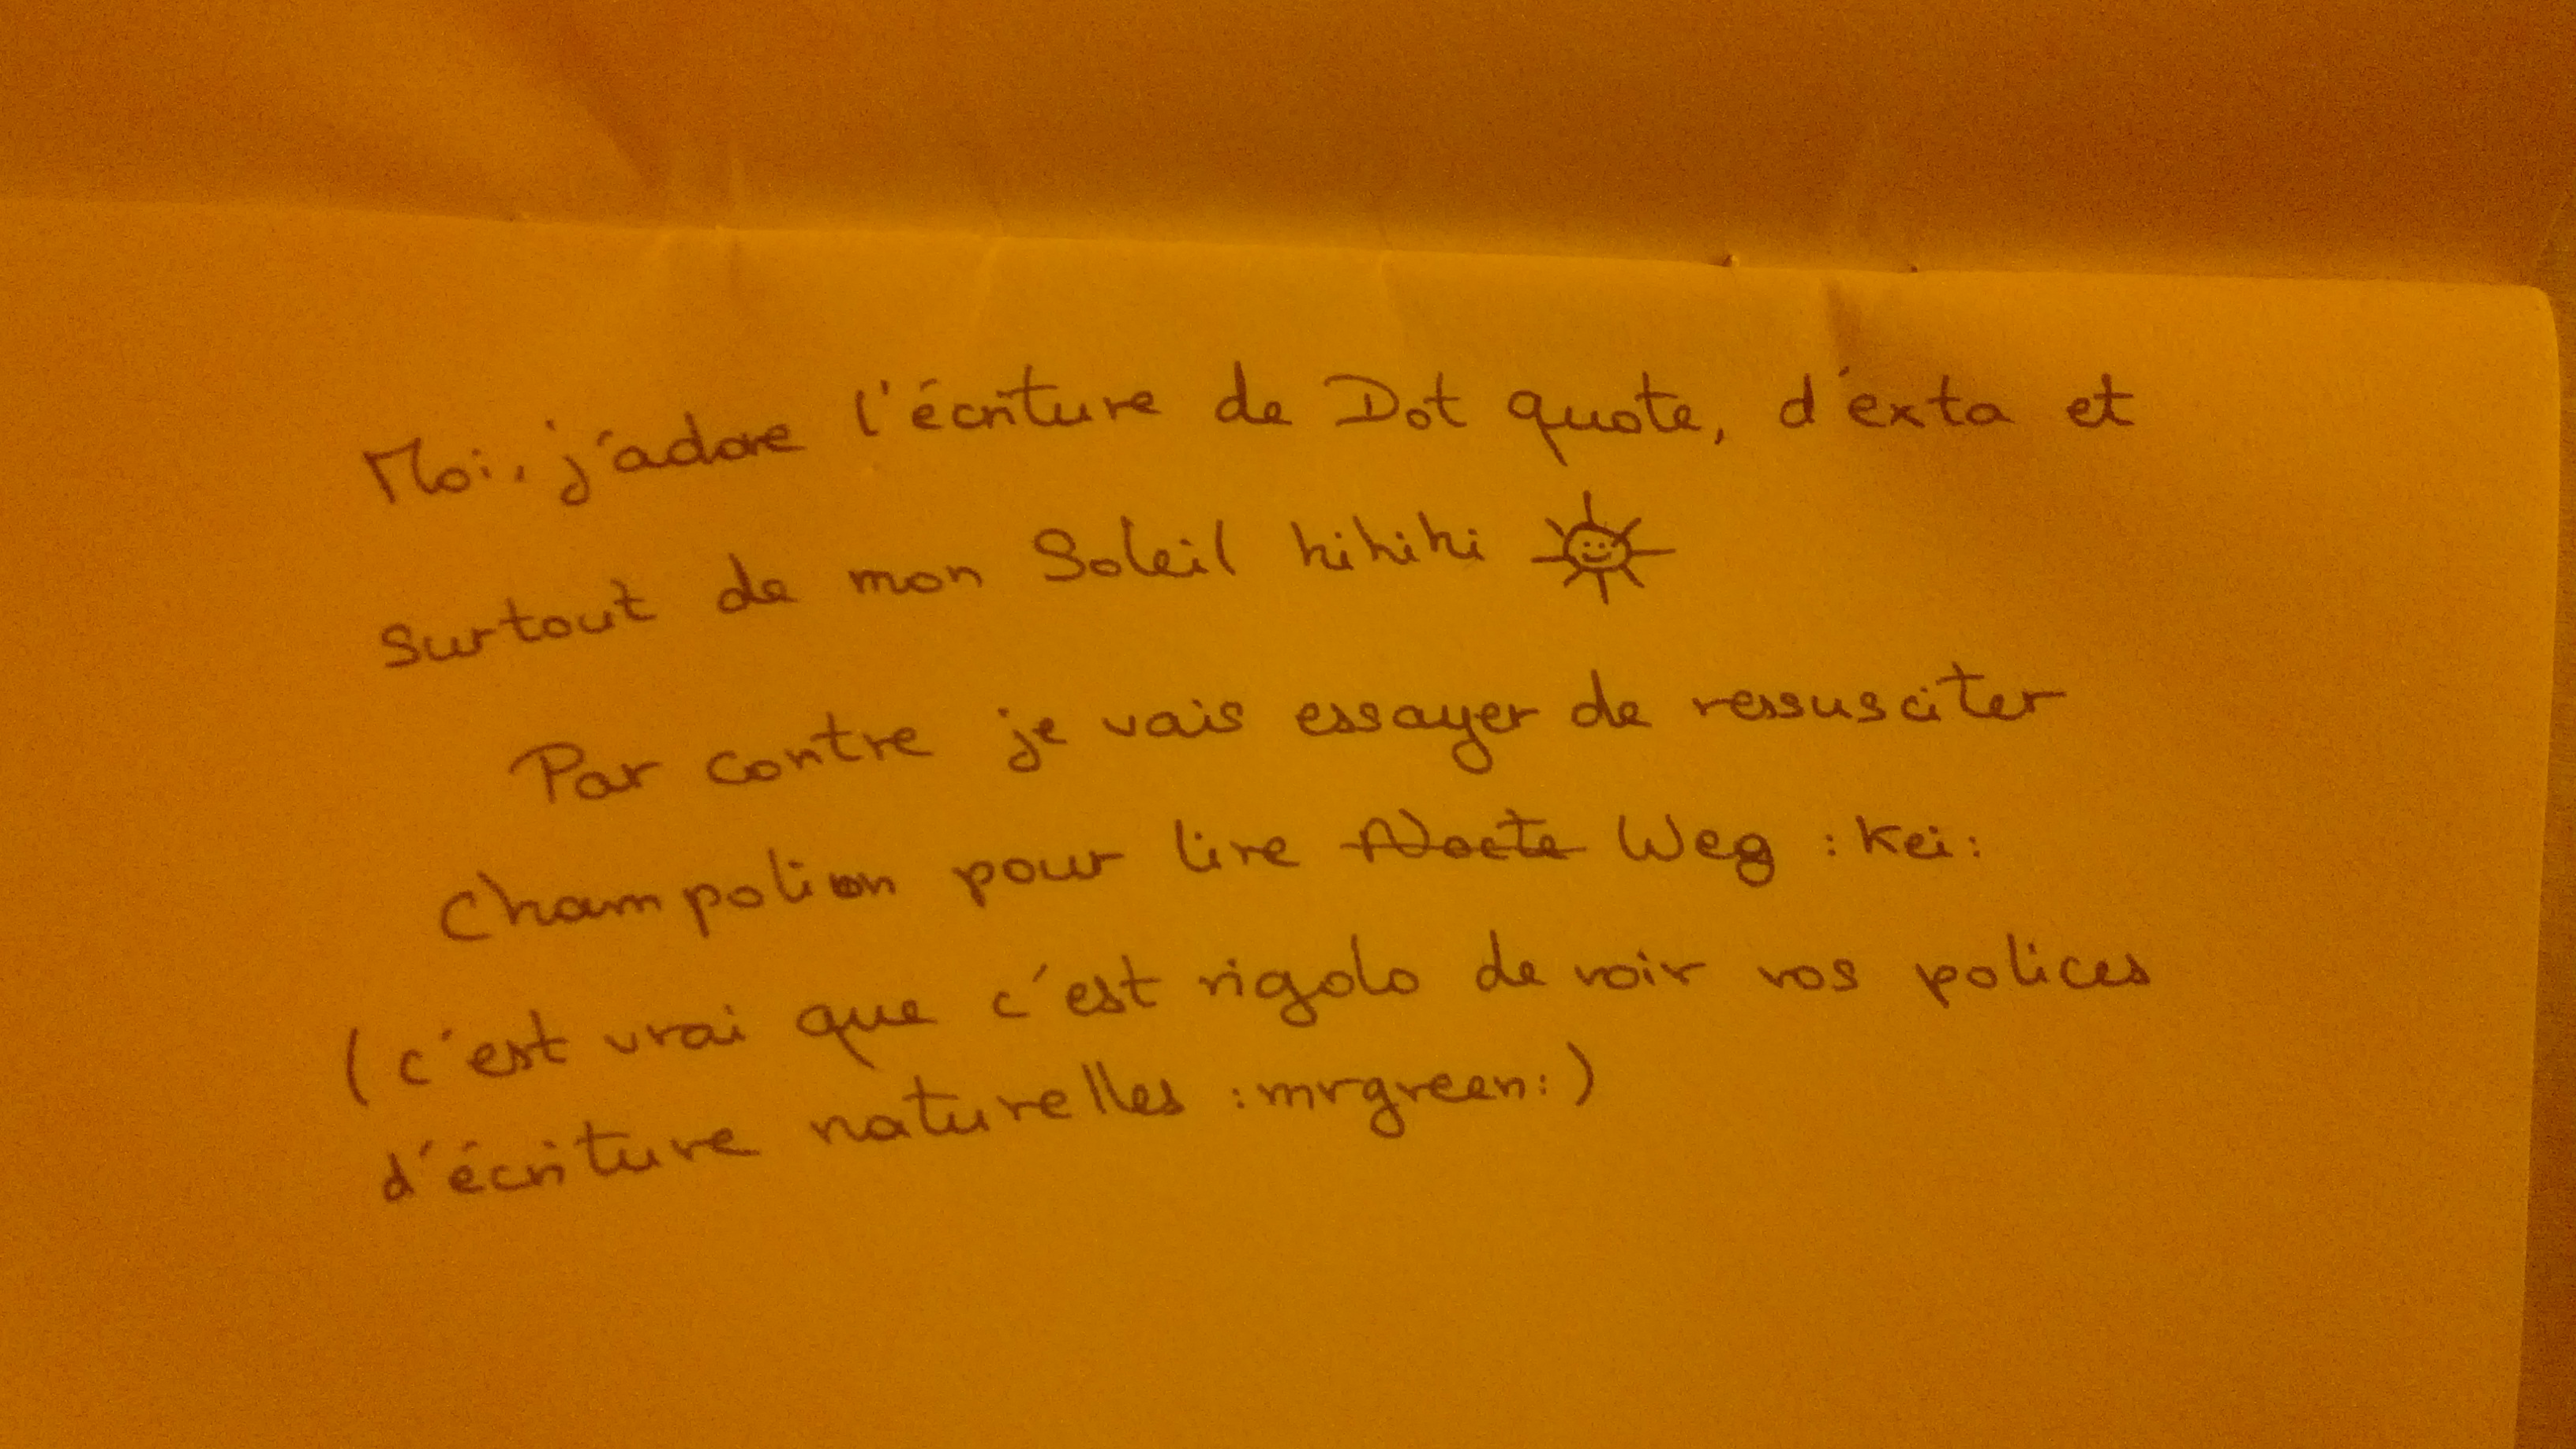 Moi, j'adore l'écriture de Dot quote, d'exta et
surtout de mon Soleil hihihi
Par contre je vais essayer de ressusciter
Champolion pour lire Nocte Weg :kei:
(c'est vrai que c'est rigolo de voir vos polices
d'écriture naturelles :mrgreen:)